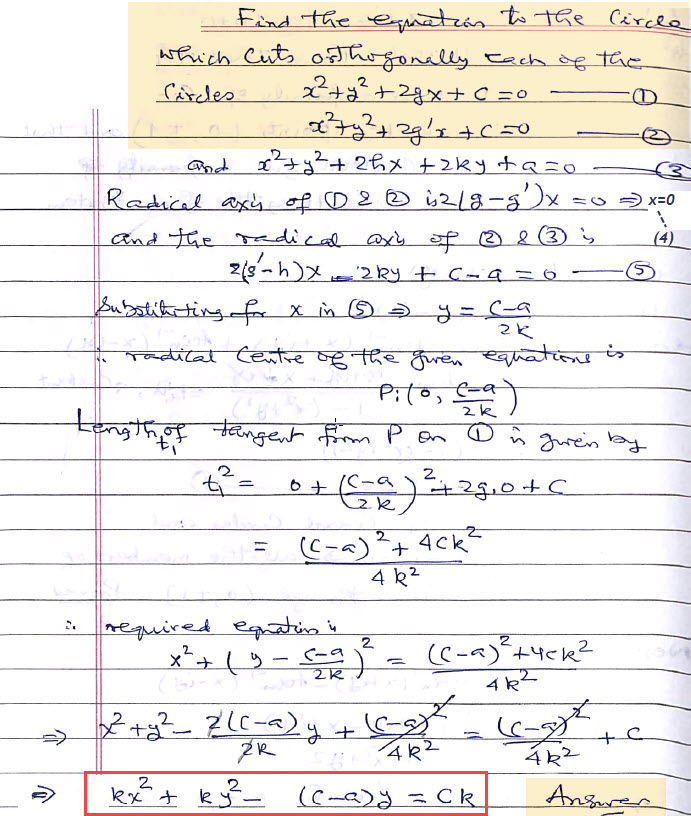 Find the equation to the Circle
which cuts orthogonally each of the
Circles x²+y²+2gx+c=0 —— ①
x²+y²+2g'x+c=0 —— ②
and x²+y²+2hx+2ky+a=0 —— ③
Radical axis of ① & ② is 2(g-g')x=0 ⇒ x=0
and the radical axis of ② & ③ is (4)
2(g'-h)x - 2ky + c-a = 0 —— ⑤
Substituting for x in ⑤ ⇒ y = (c-a)/2k
∴ radical Centre of the given equations is
P: (0, (c-a)/2k)
Length t₁ of tangent from P on ① is given by
t₁² = 0 + ((c-a)/2k)² + 2g.0 + c
= ((c-a)² + 4ck²)/4k²
∴ required equation is
x² + (y - (c-a)/2k)² = ((c-a)²+4ck²)/4k²
⇒ x²+y² - 2(c-a)/2k y + (c-a)²/4k² = (c-a)²/4k² + c
⇒ kx² + ky² - (c-a)y = ck Answer